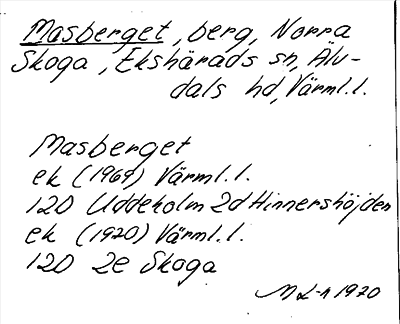 Masberget, berg, Norra
Skoga, Ekshärads sn, Älv-
dals hd, Värml.l.
Masberget
ek (1969) Värml.l.
120 Uddeholm 2d Hinnershöjden
ek (1970) Värml.l.
120 2e Skoga
M L-n 1970